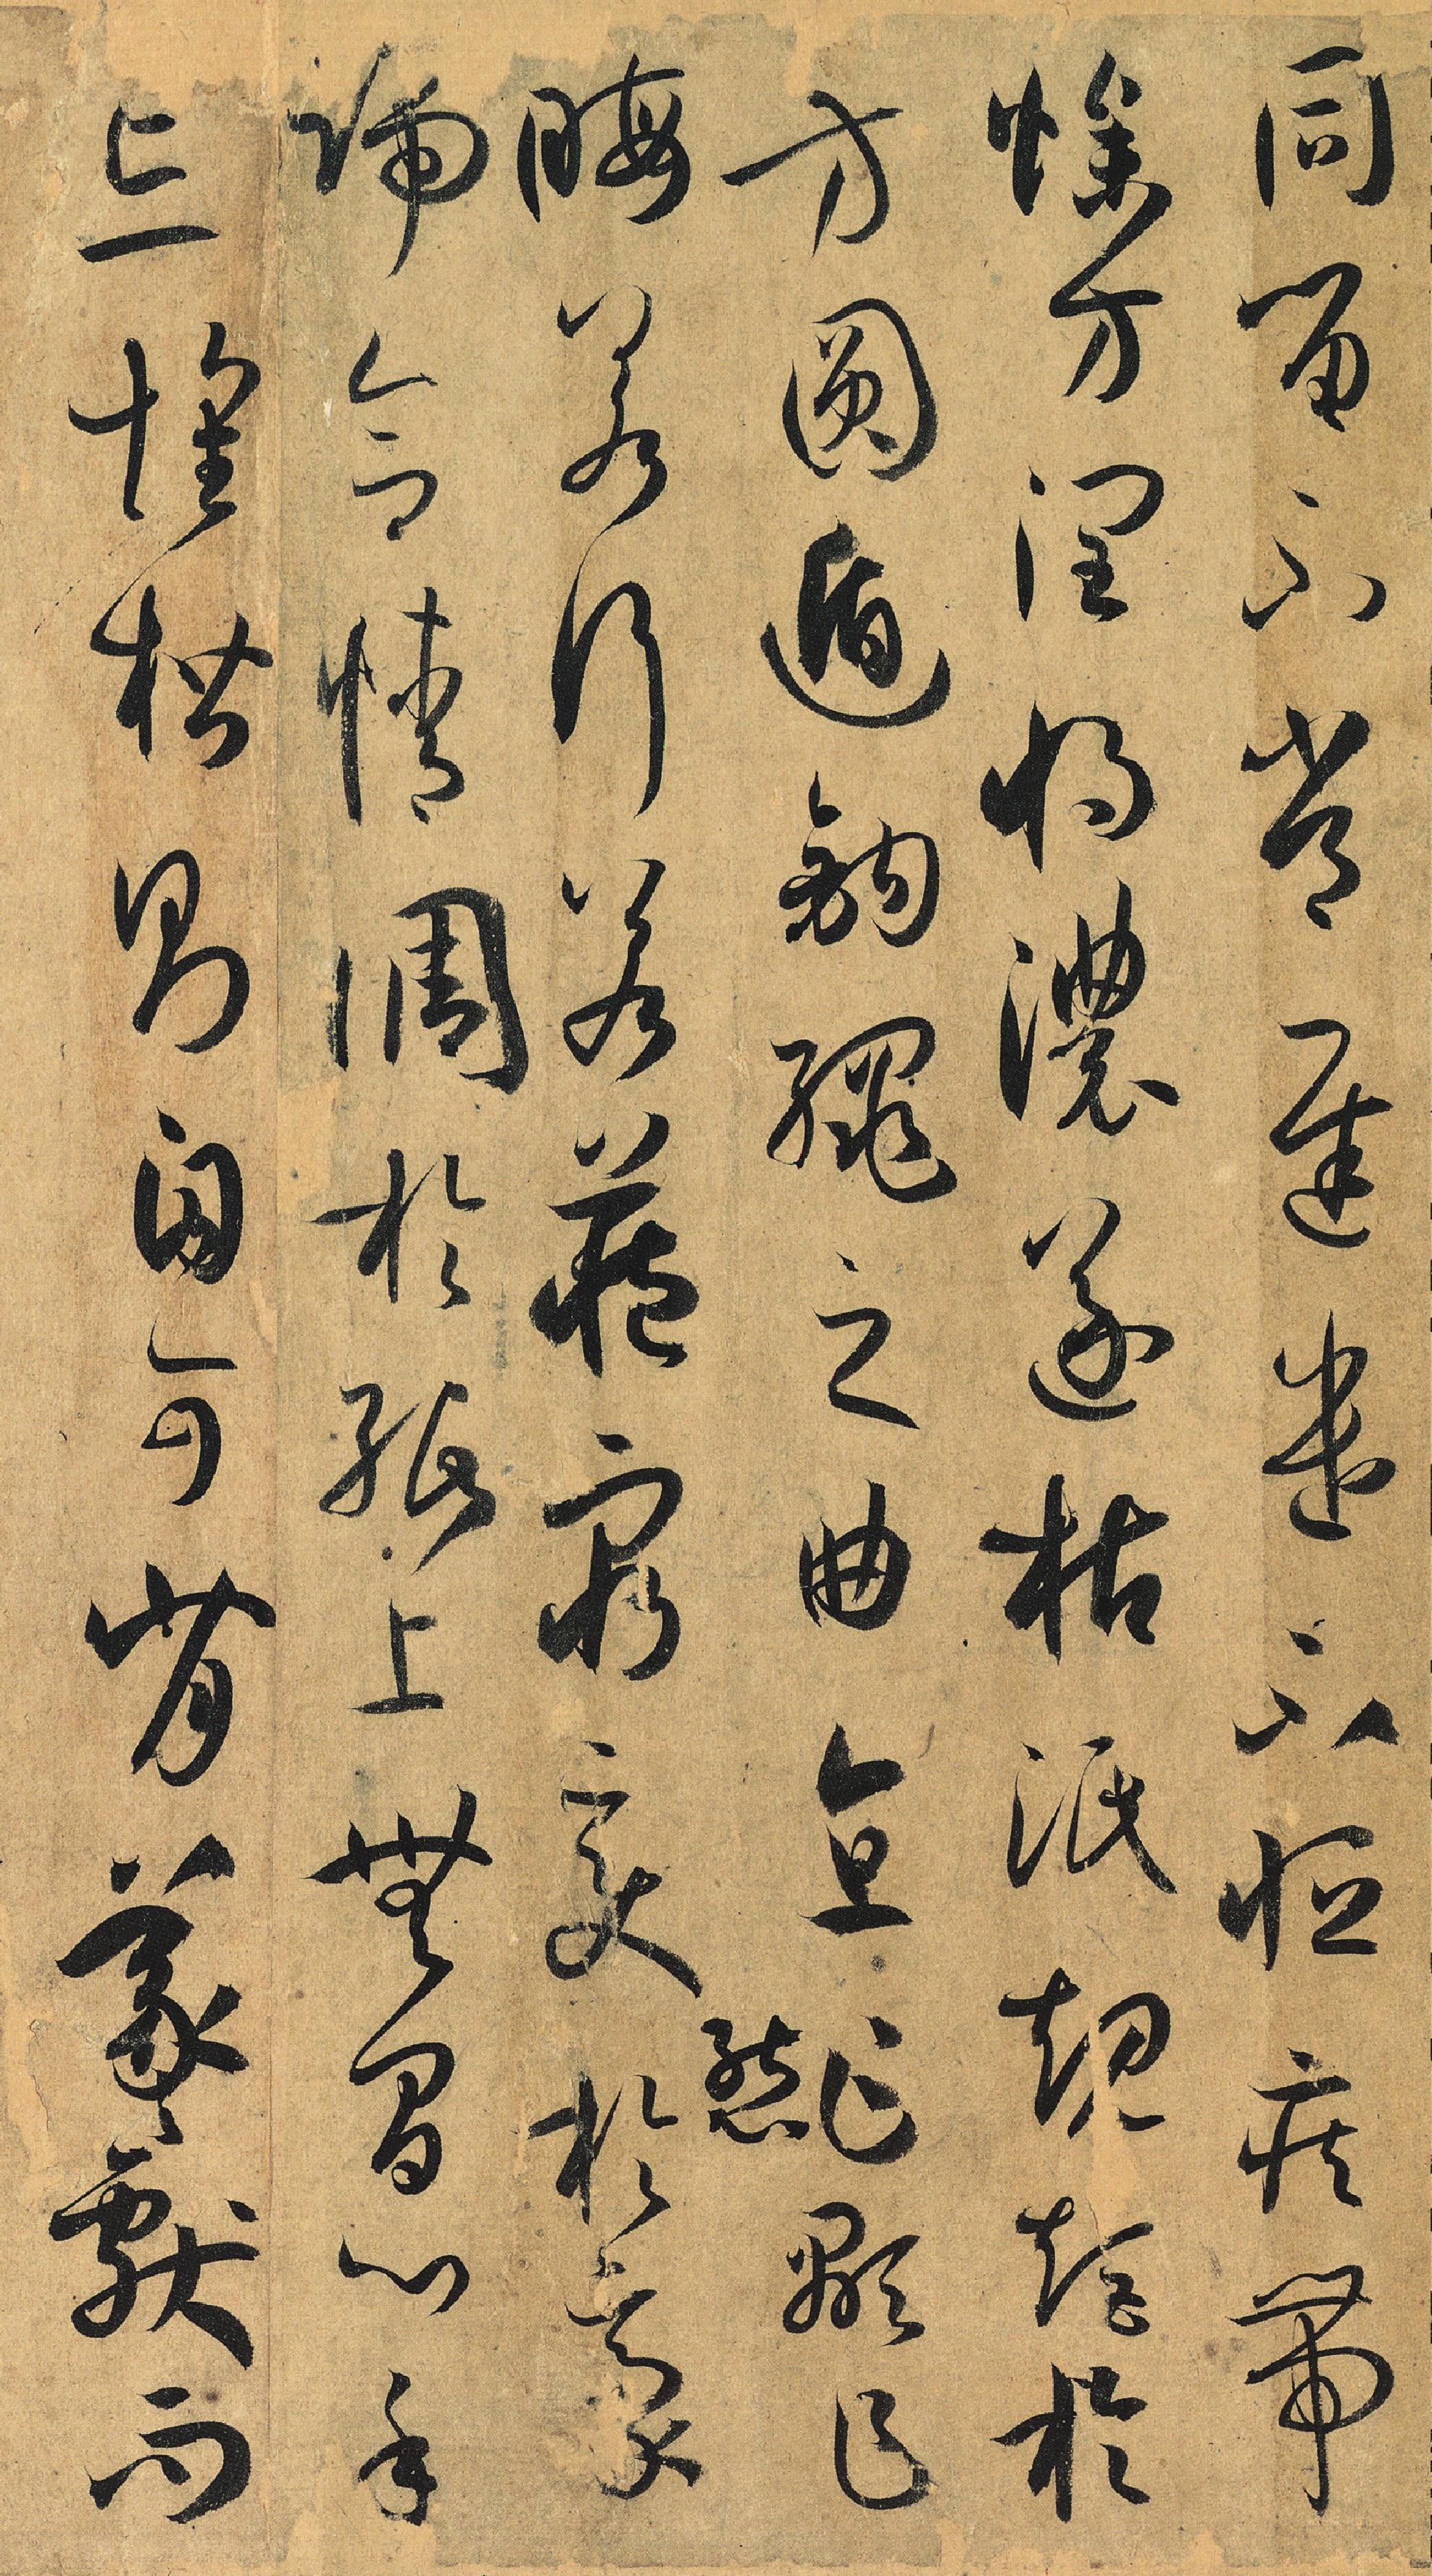 同留不常遲遣不恒疾帶
燥方潤將濃遂枯泯規矩於
方圓遁鉤繩之曲直乍顯乍
晦若行若藏窮變態於豪
端合情調於紙上無間心手
忘懷楷則自可背羲獻而